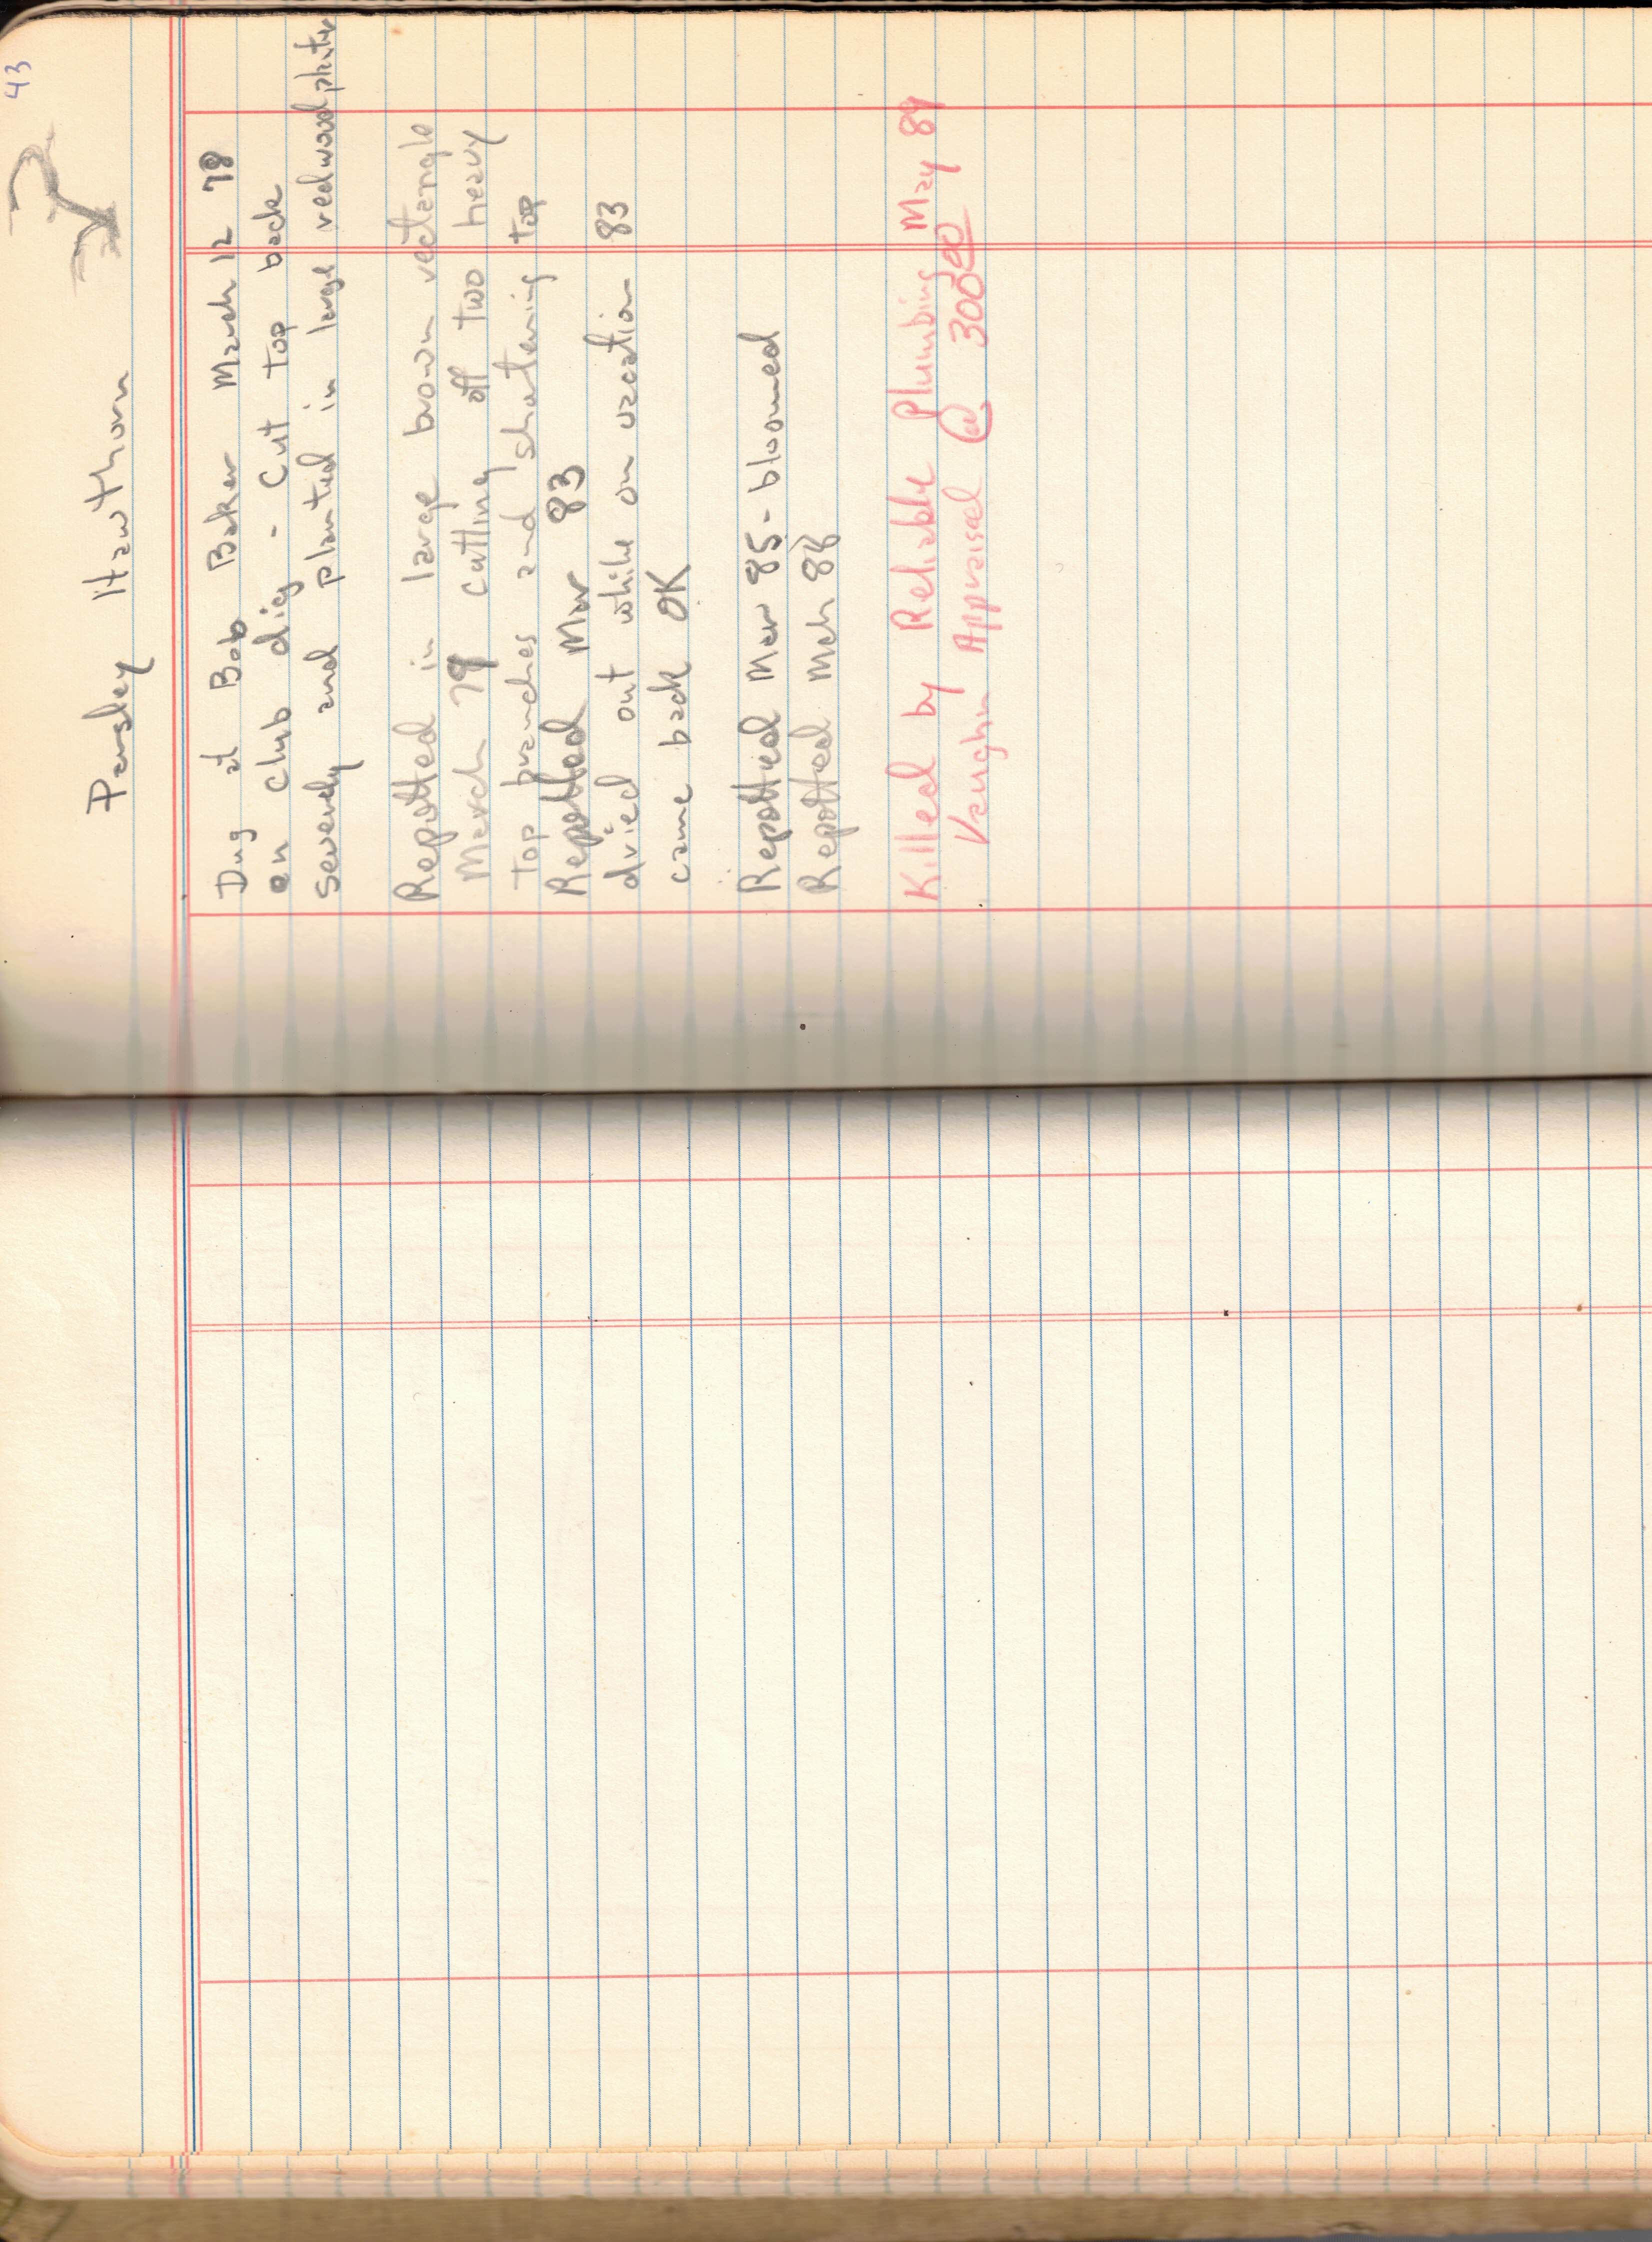 43
Parsley Hawthorn
Dug at Bob Baker March 12 78
on Club dig - Cut top back
severely and planted in large redwood planter
Repotted in large brown rectangle
March 79 cutting off two heavy
top branches and shortening top
Repotted Mar 83
dried out while on vacation 83
came back OK
Repotted Mar 85 - bloomed
Repotted Mch 88
Killed by Reliable Plumbing May 89
Vaughn Appraised @ 300 00